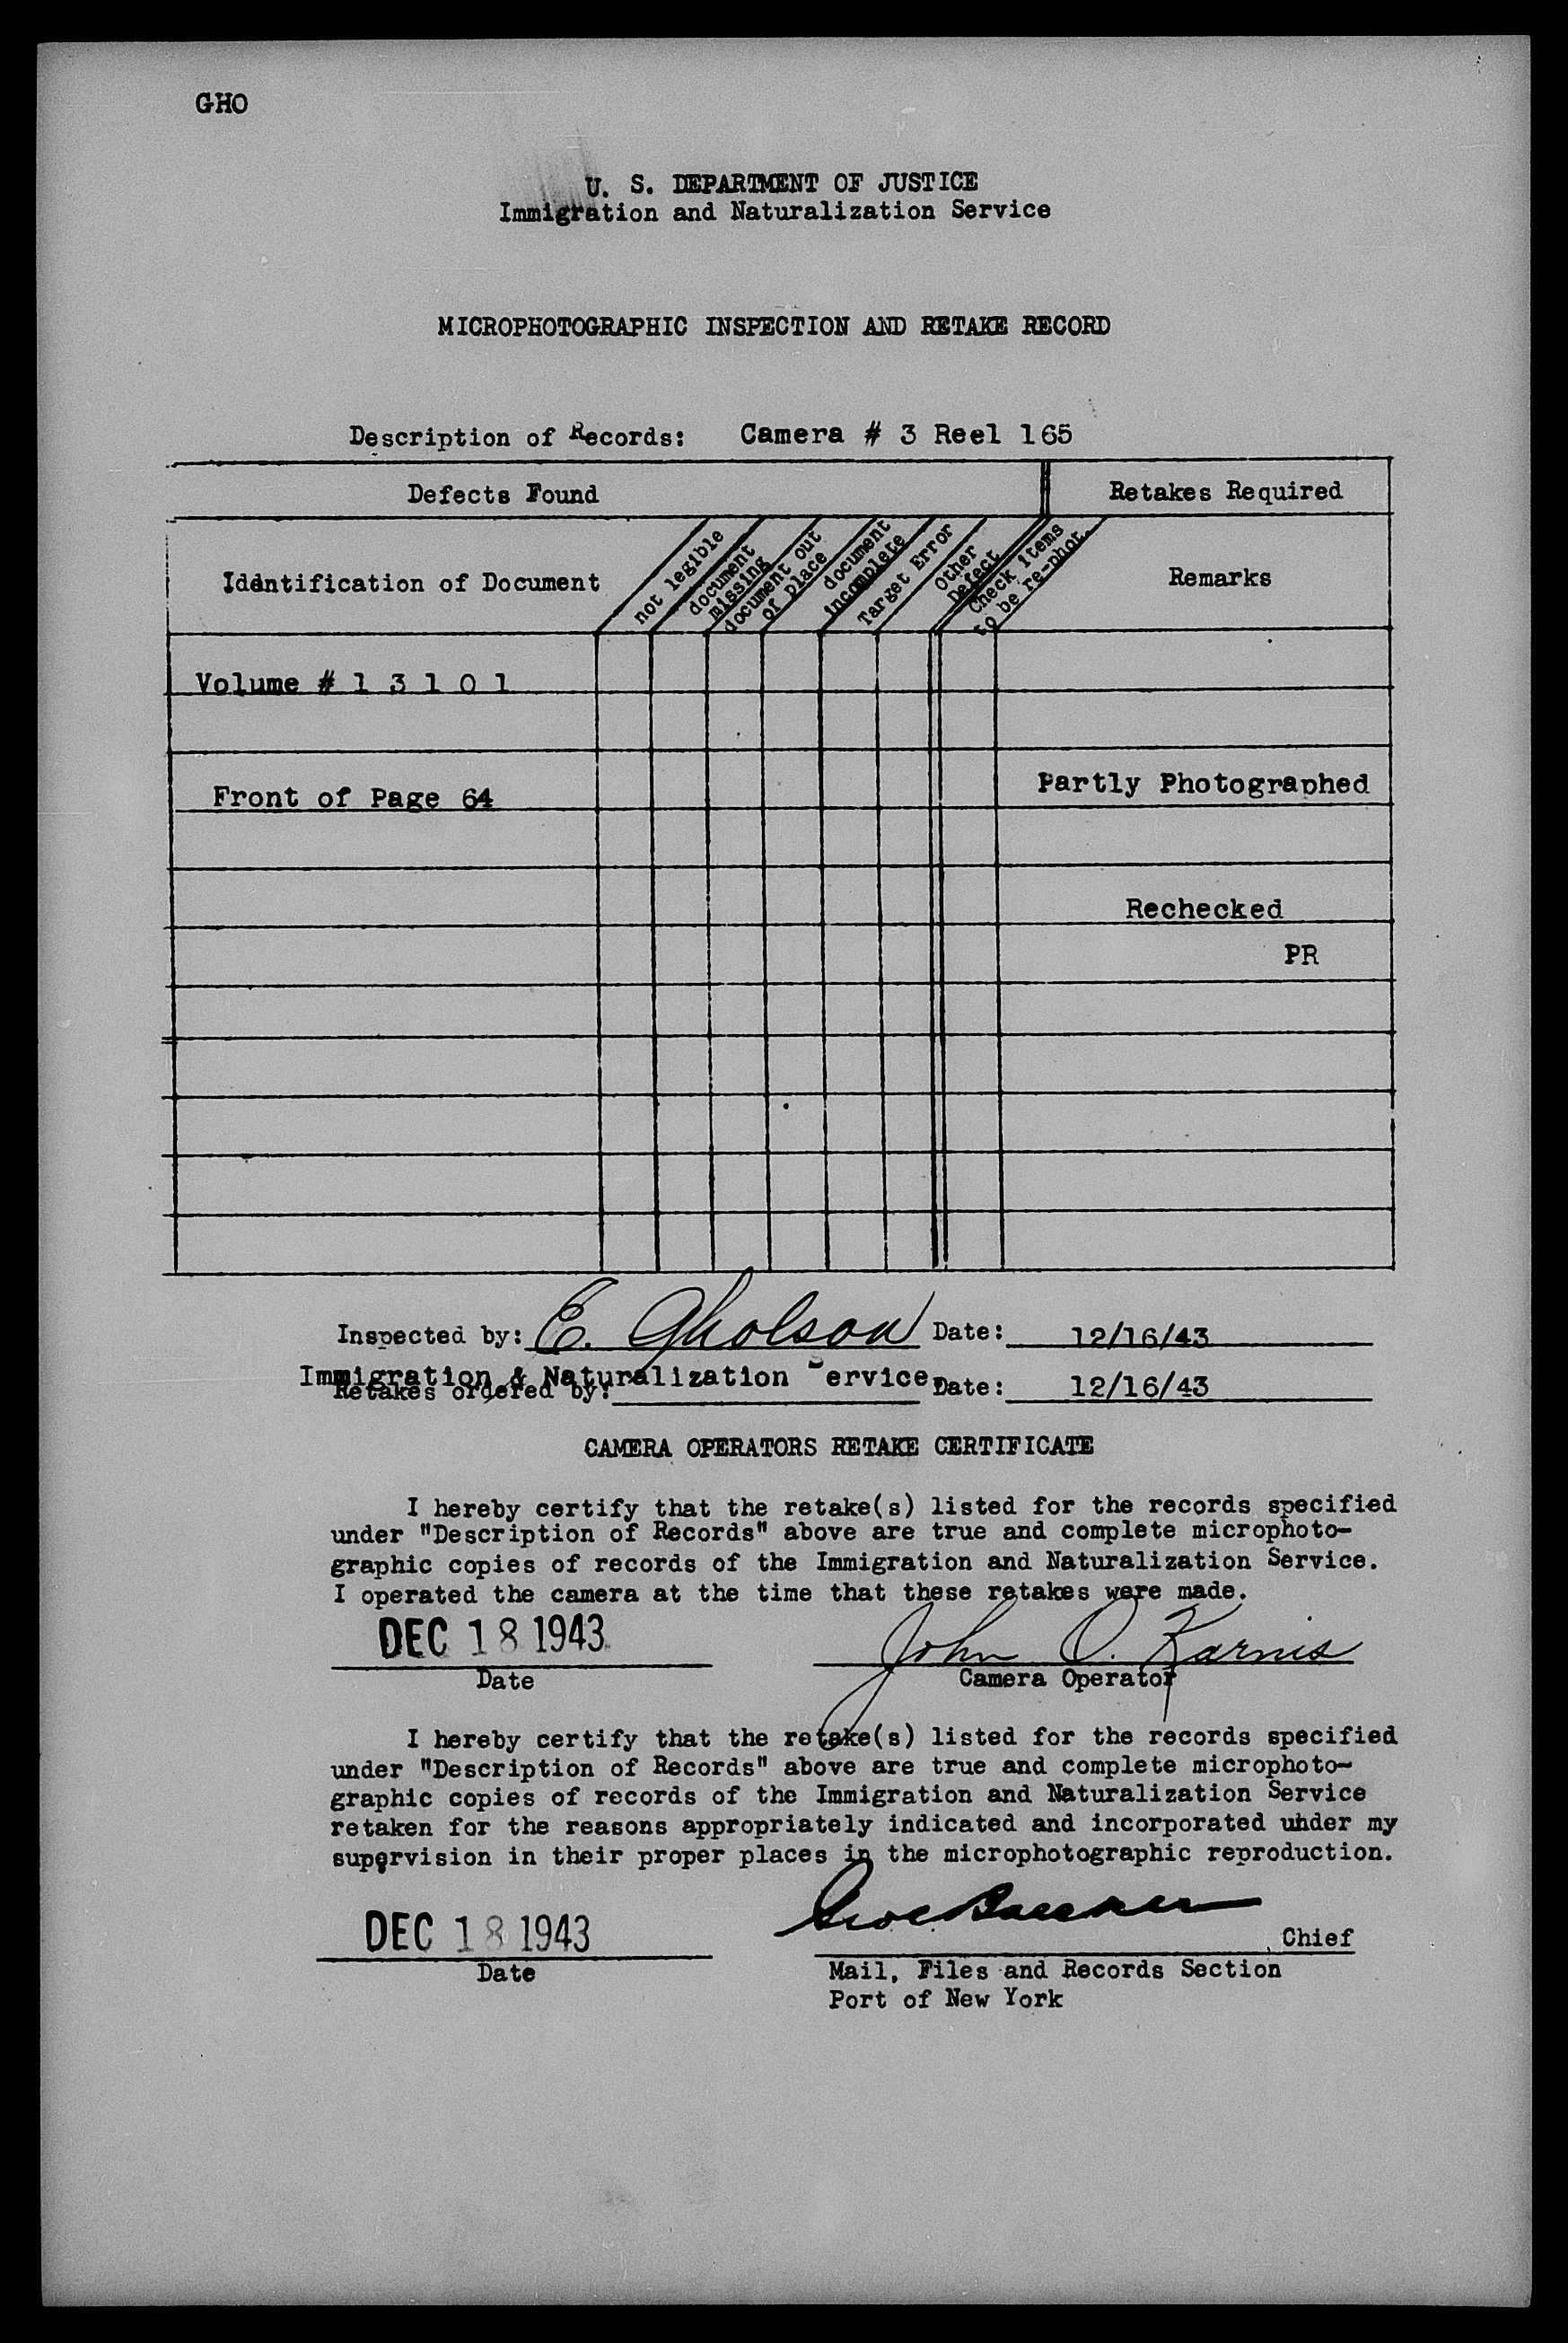 GHO
U. S. DEPARTMENT OF JUSTICE
Immigration and Naturalization Service
MICROPHOTOGRAPHIC INSPECTION AND RETAKE RECORD
Description of Records: Camera # 3 Reel 165
Defects Found Retakes Required
Identification of Document
not legible
document missing
document out of place
document incomplete
Target Error
Other Defect
Check items to be re-phot.
Remarks
Volume # 1 3 1 0 1
Front of Page 64 Partly Photographed
Rechecked
PR
Inspected by: E. Gholson Date: 12/16/43
Immigration & Naturalization Service.
Retakes ordered by: Date: 12/16/43
CAMERA OPERATORS RETAKE CERTIFICATE
I hereby certify that the retake(s) listed for the records specified
under "Description of Records" above are true and complete microphoto-
graphic copies of records of the Immigration and Naturalization Service.
I operated the camera at the time that these retakes were made.
DEC 18 1943 John O. Karnis
Date Camera Operator
I hereby certify that the retake(s) listed for the records specified
under "Description of Records" above are true and complete microphoto-
graphic copies of records of the Immigration and Naturalization Service
retaken for the reasons appropriately indicated and incorporated under my
supervision in their proper places in the microphotographic reproduction.
DEC 18 1943 , Chief
Date Mail, Files and Records Section
Port of New York